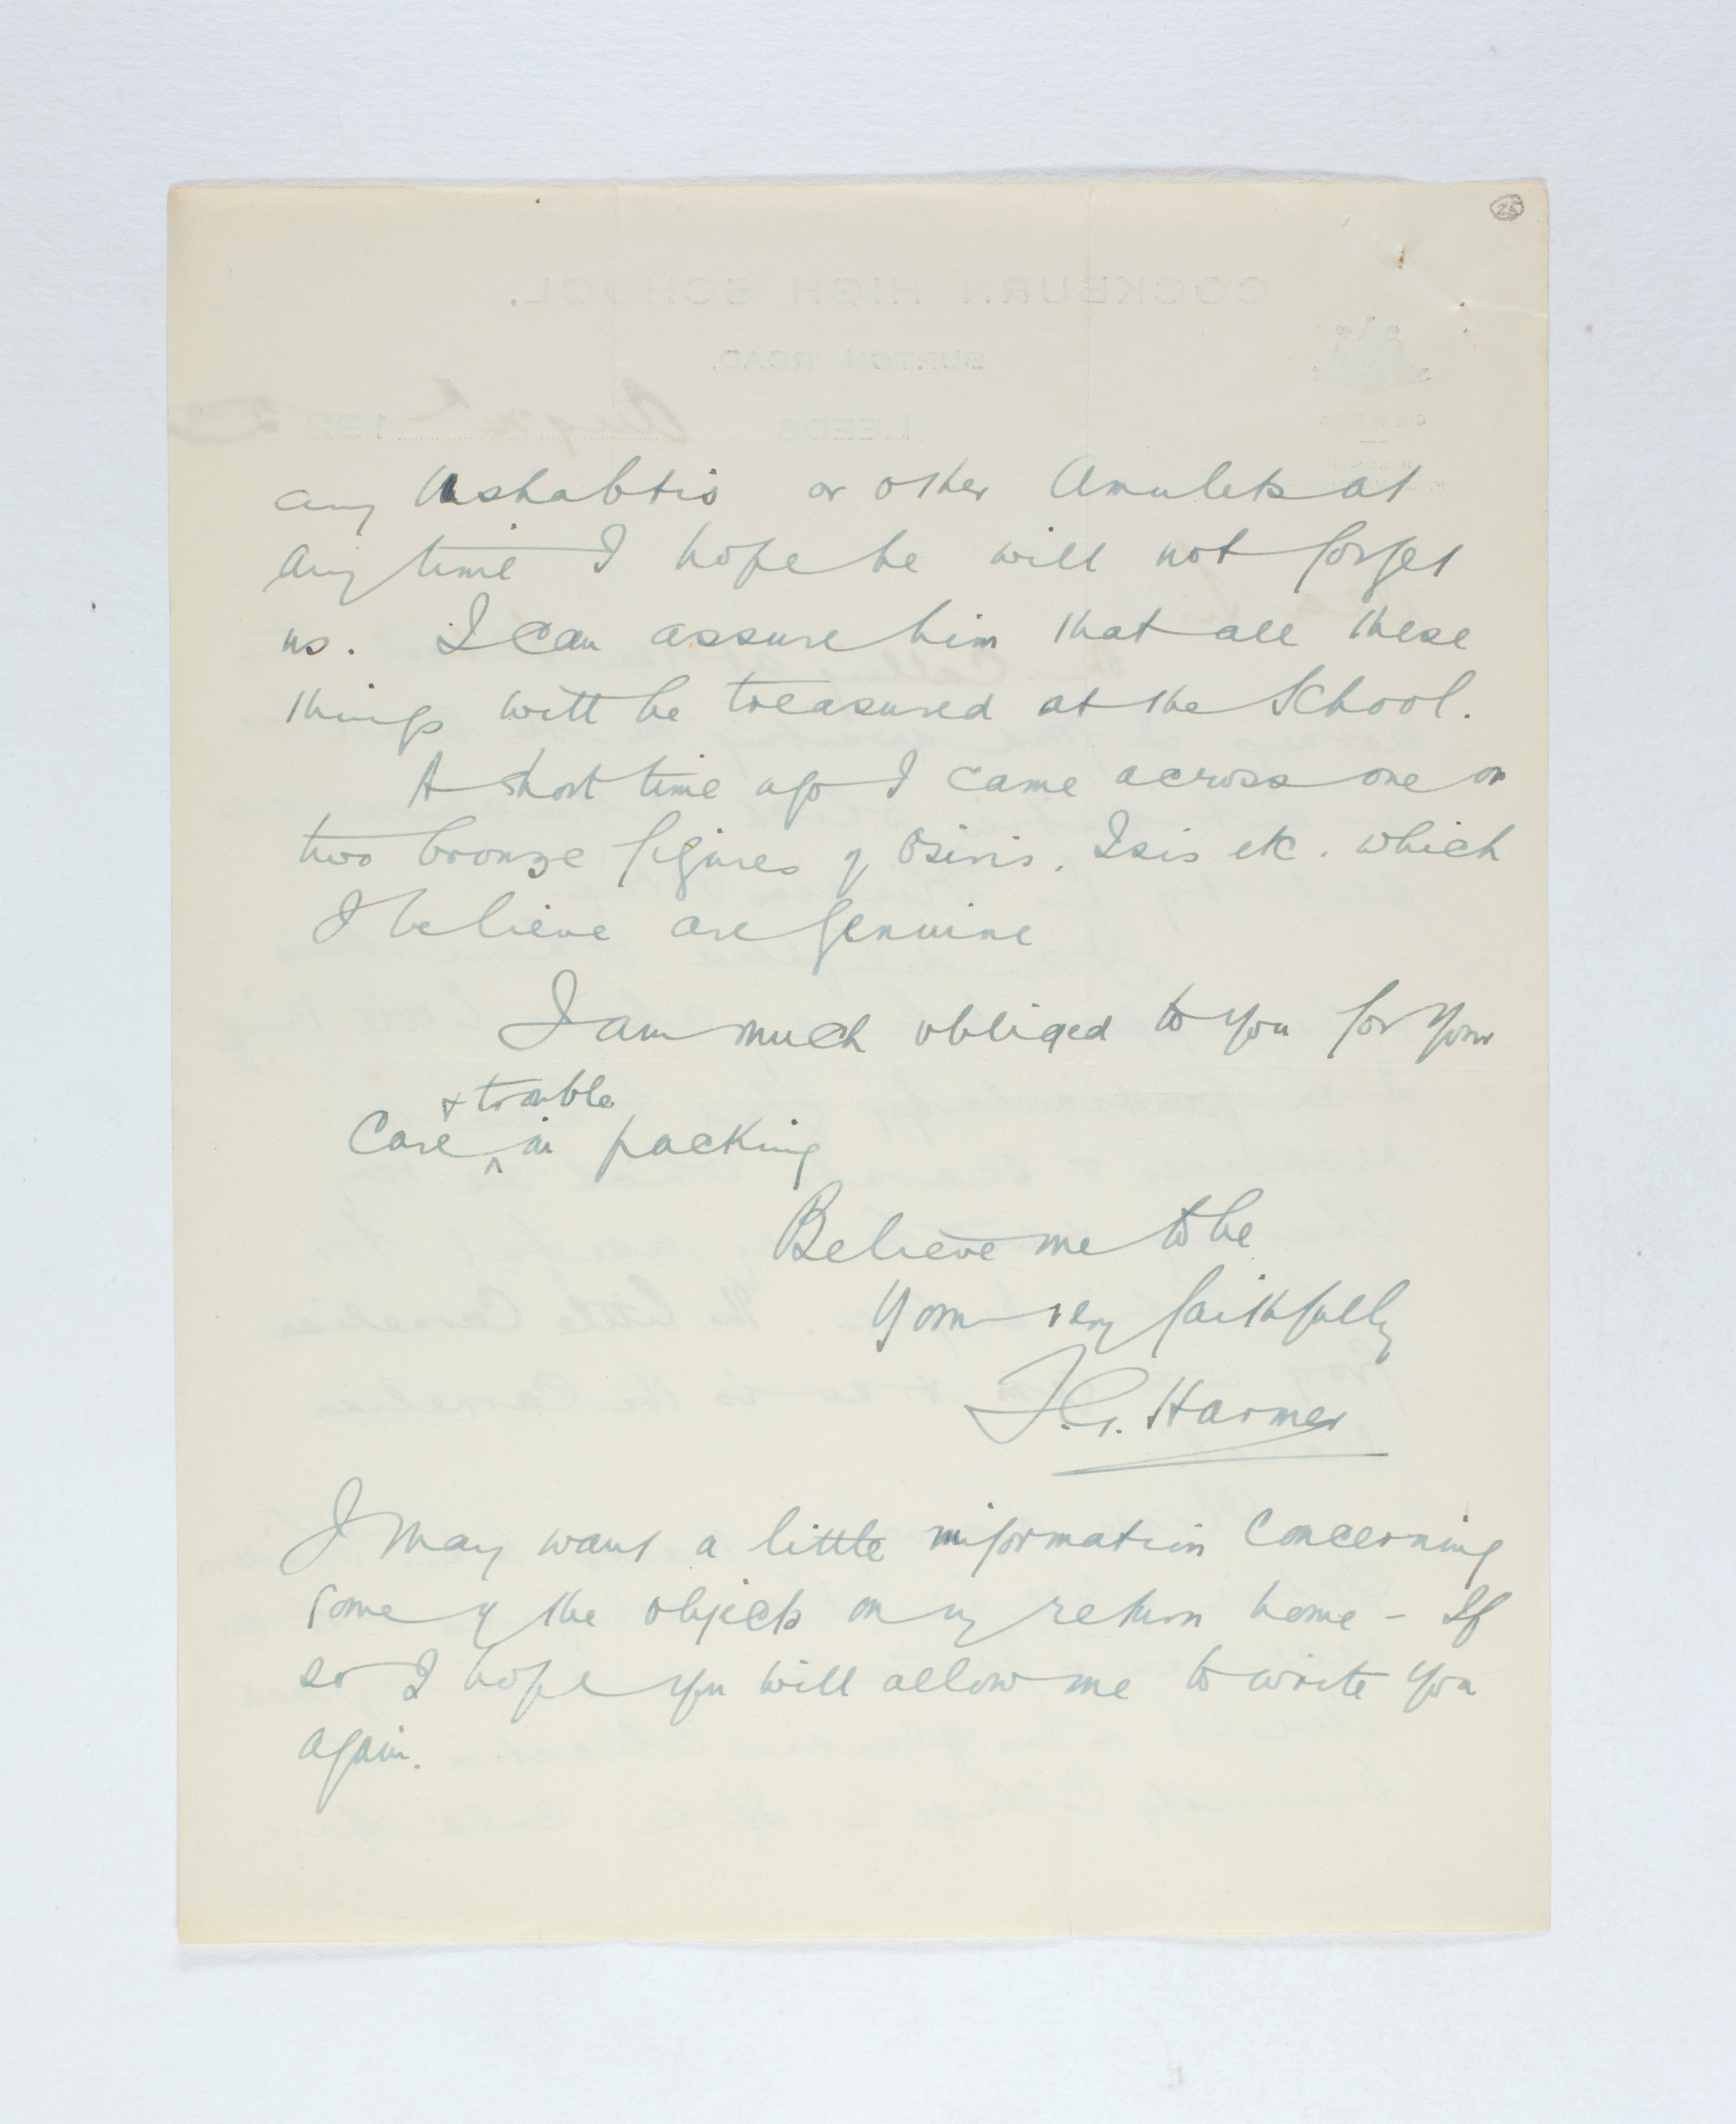 25
any Ushabtis or other Amulets at
any time I hope he will not forget
us. I can assure him that all these
things will be treasured at the School.
A short time ago I came across one or
two bronze figures of Osiris. Isis etc. which
I believe are genuine
I am much obliged to you for your
& trouble
Care ^ in packing
Believe me to be
Yours very faithfully
F.G. Harmer
I may want a little information concerning
some of the objects on my return home - If
so I hope you will allow me to write you
again.